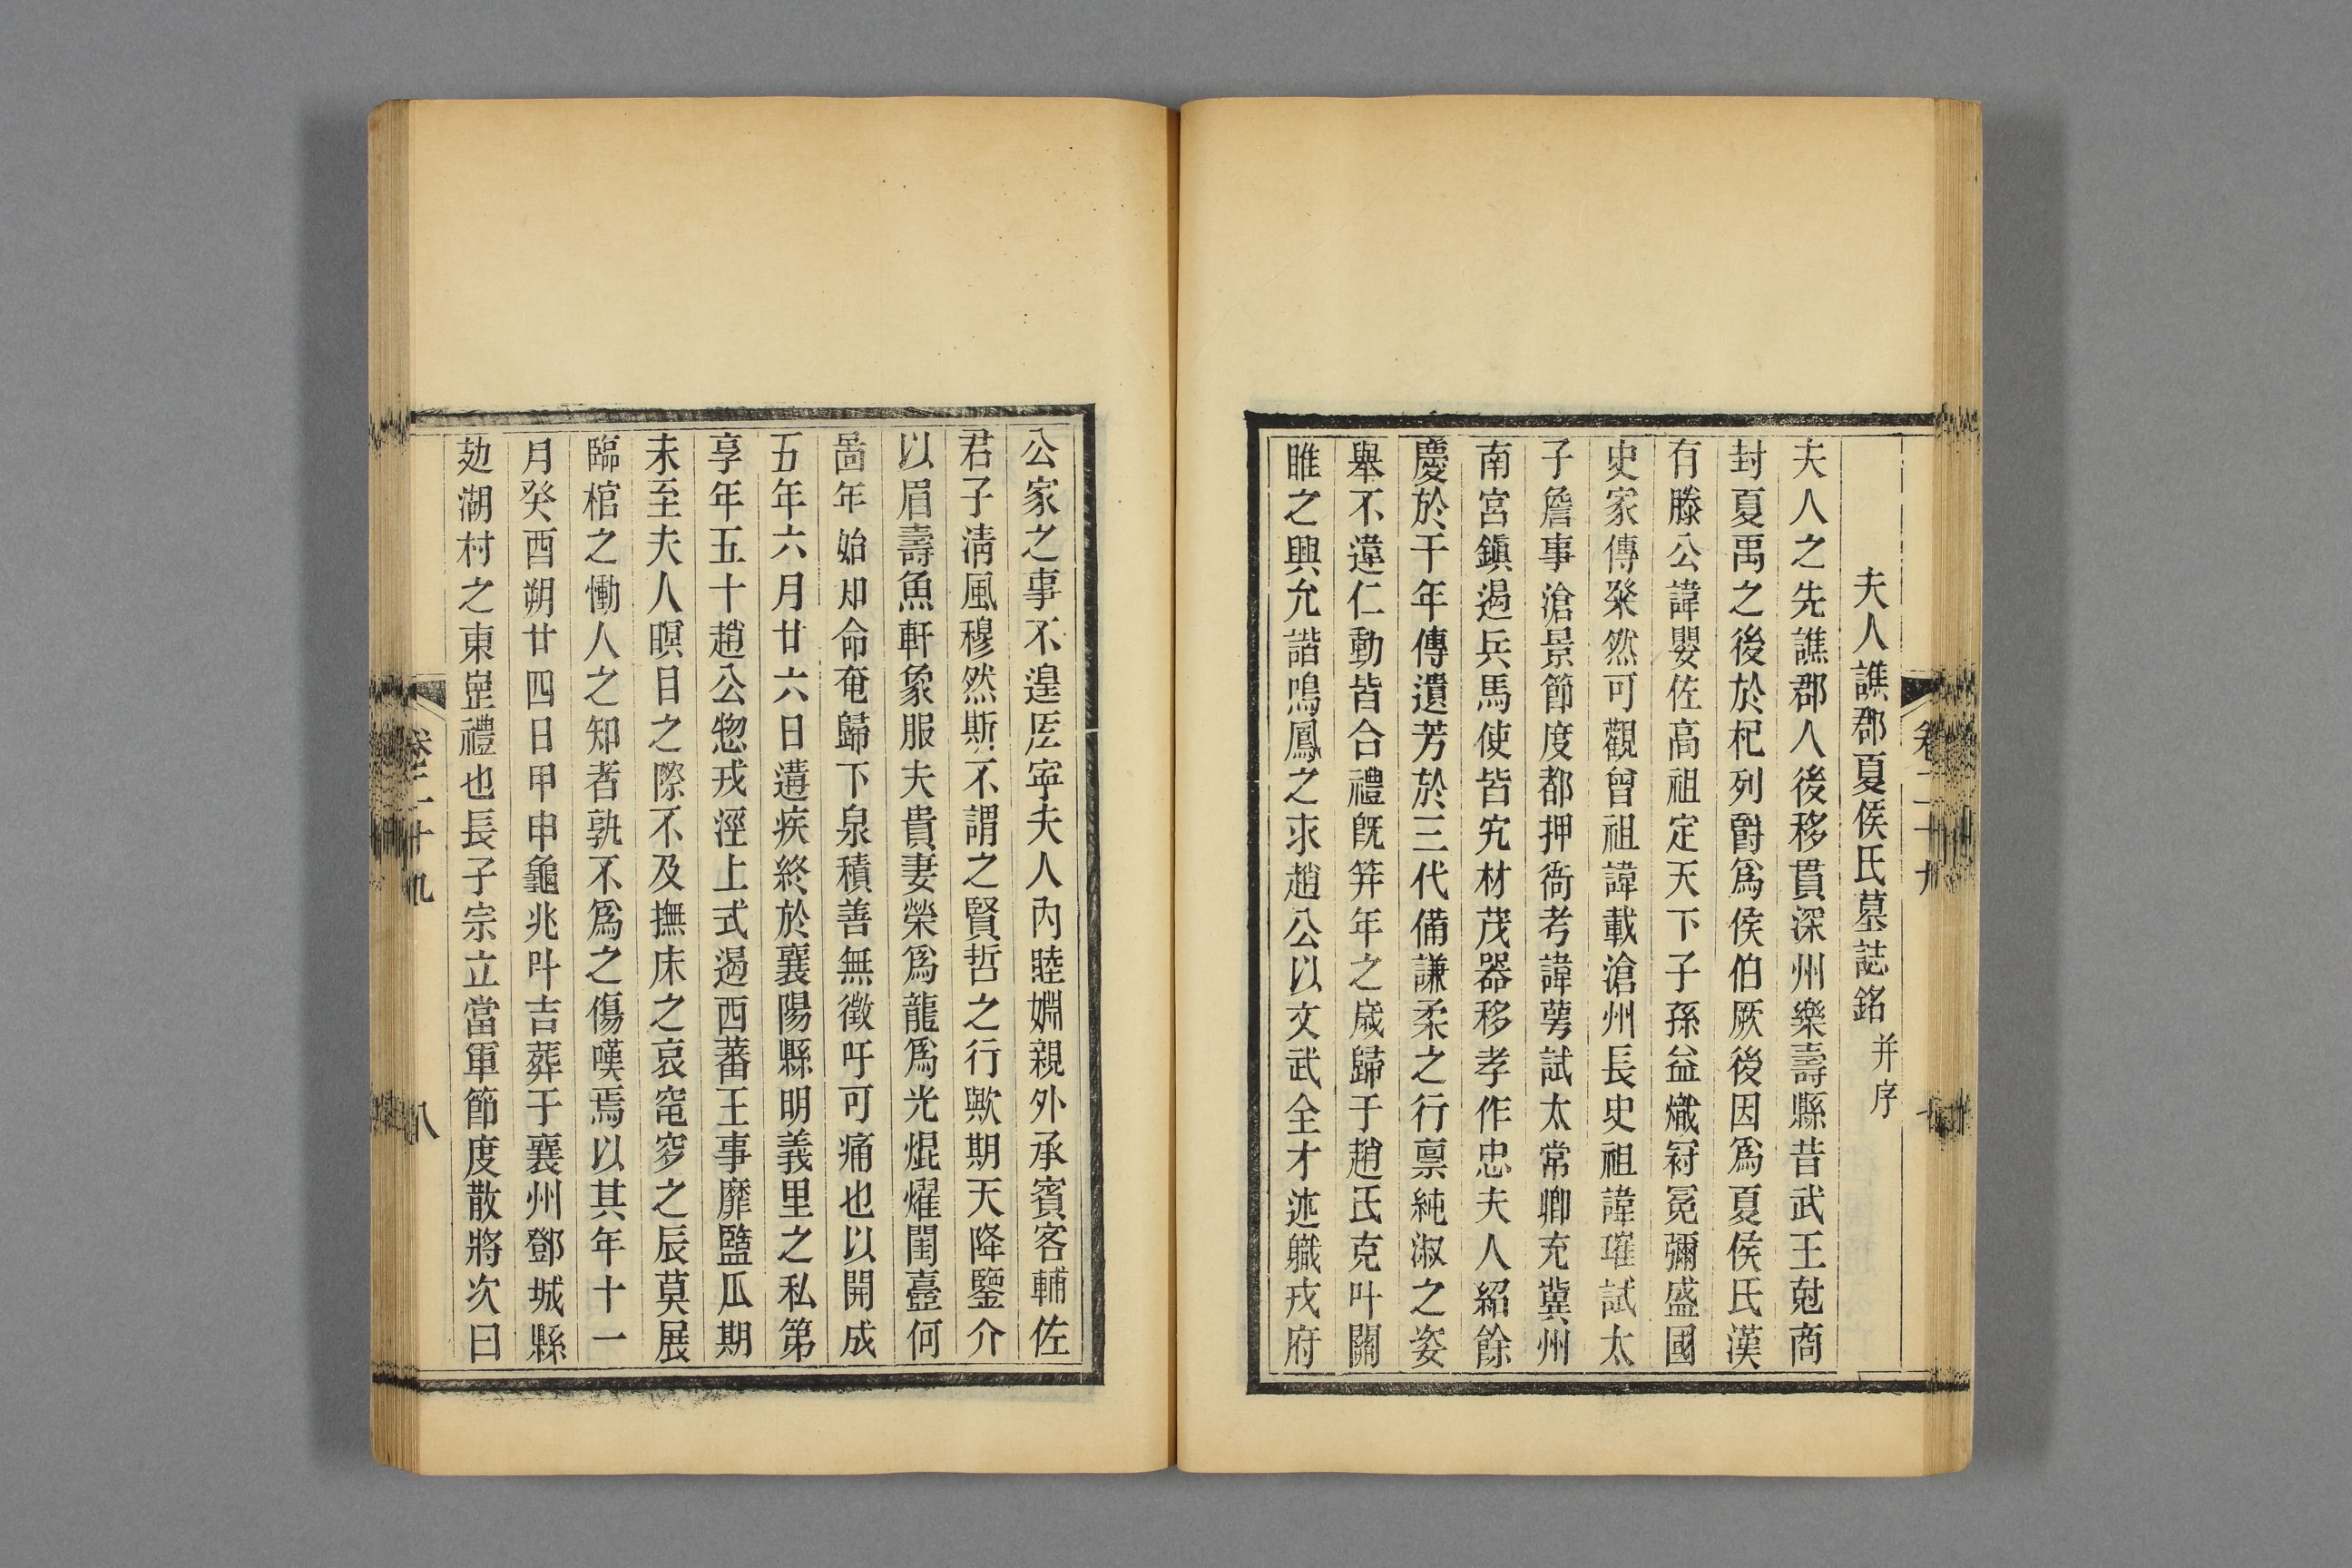 夫人譙郡夏侯氏墓誌銘并序
夫人之先譙郡人後移貫深州樂壽縣昔武王尅商
封夏禹之後於杞列爵爲侯伯厥後因爲夏侯氏漢
有滕公諱嬰佐高祖定天下子孫益熾冠冕彌盛國
史家傳粲然可觀曾祖諱載滄州長史祖諱璀試太
子詹事滄景節度都押衙考諱萼試太常卿充冀州
南宮鎮遏兵馬使皆宄材茂器移孝作忠夫人紹餘
慶於千年傳遺芳於三代備謙柔之行禀純淑之姿
舉不違仁動皆合禮旣笄年之歲歸于趙氏克叶關
睢之興允諧鳴鳳之求趙公以文武全才迹軄戎府
公家之事不遑啓寧夫人內睦婣親外承賓客輔佐
君子淸風穆然斯不謂之賢哲之行歟期天降鑒介
以眉壽魚軒象服夫貴妻榮爲龍爲光焜燿閨臺何
啚年始知命奄歸下泉積善無徵吁可痛也以開成
五年六月廿六日遘疾終於襄陽縣明義里之私第
享年五十趙公惣戎涇上式遏西蕃王事靡盬瓜期
未至夫人暝目之際不及撫床之哀窀穸之辰莫展
臨棺之慟人之知者孰不爲之傷嘆焉以其年十一
月癸酉朔廿四日甲申龜兆叶吉葬于襄州鄧城縣
湖村之東崗禮也長子宗立當軍節度散將次曰
卷二十九
八